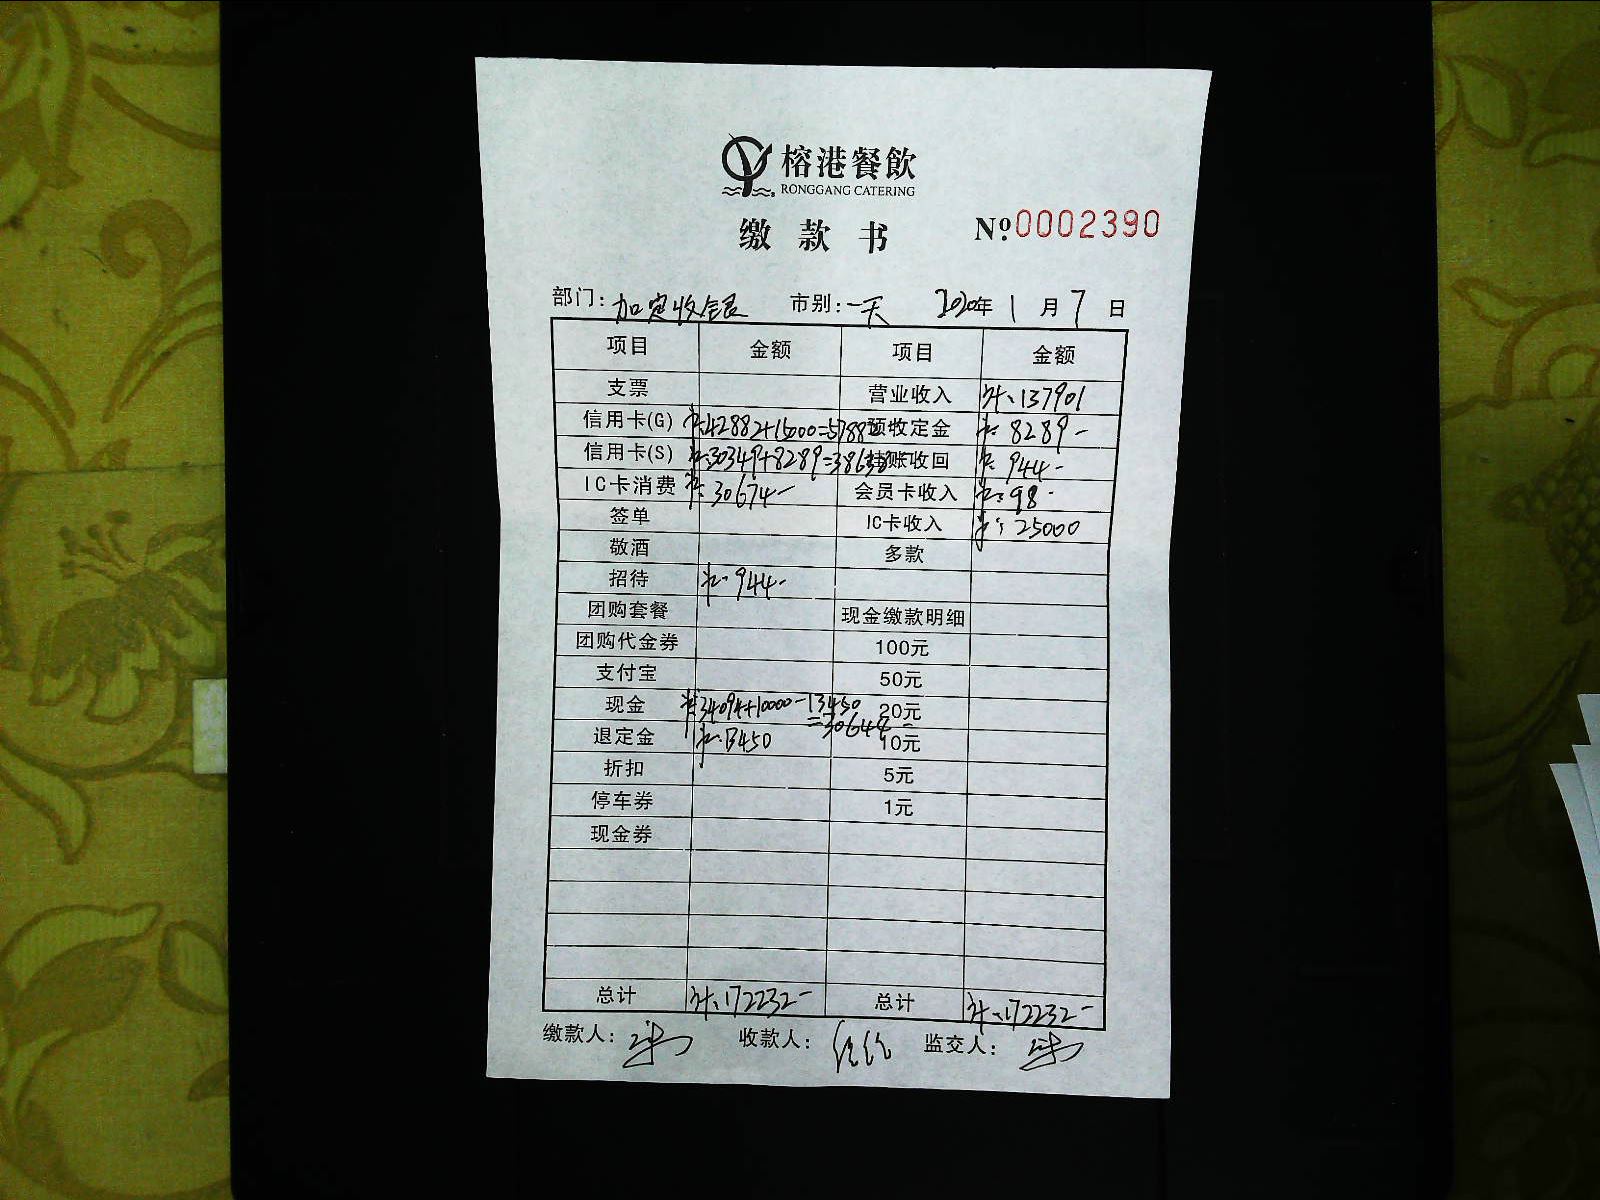 榕港餐飲
RONGGANG CATERING
缴款书 №0002390
部门: 加定收银 市别: 一天 2020年 1月 7日
项目 金额 项目 金额
支票 营业收入 计、137901
信用卡(G) 42882+15000=57882 预收定金 8289-
信用卡(S) 30349+8289=38638 挂账收回 944-
IC卡消费 30674- 会员卡收入 98-
签单 IC卡收入 25000
敬酒 多款
招待 944-
团购套餐 现金缴款明细
团购代金券 100元
支付宝 50元
现金 34094+10000-13450 20元
=30644-
退定金 13450 10元
折扣 5元
停车券 1元
现金券
总计 计、172232- 总计 计、172232-
缴款人: 收款人: 监交人: